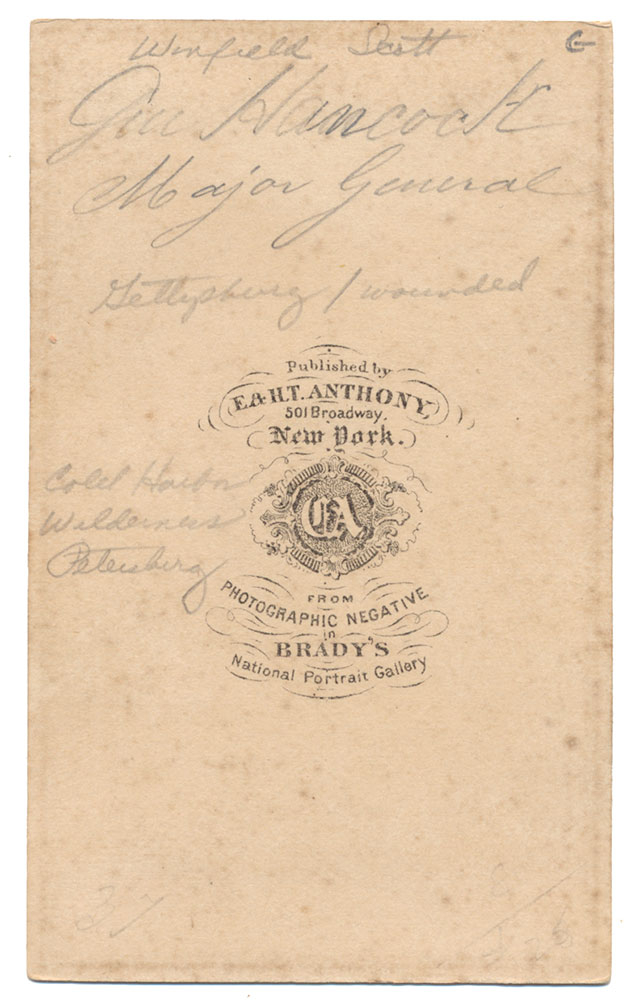 Winfield Scott
G
Gen Hancock
Major General
Gettysburg / wounded
Published by
E. & H.T. ANTHONY,
501 Broadway.
New York.
Cold Harbor
Wilderness
Petersburg
FROM
PHOTOGRAPHIC NEGATIVE
in
BRADY'S
National Portrait Gallery
27